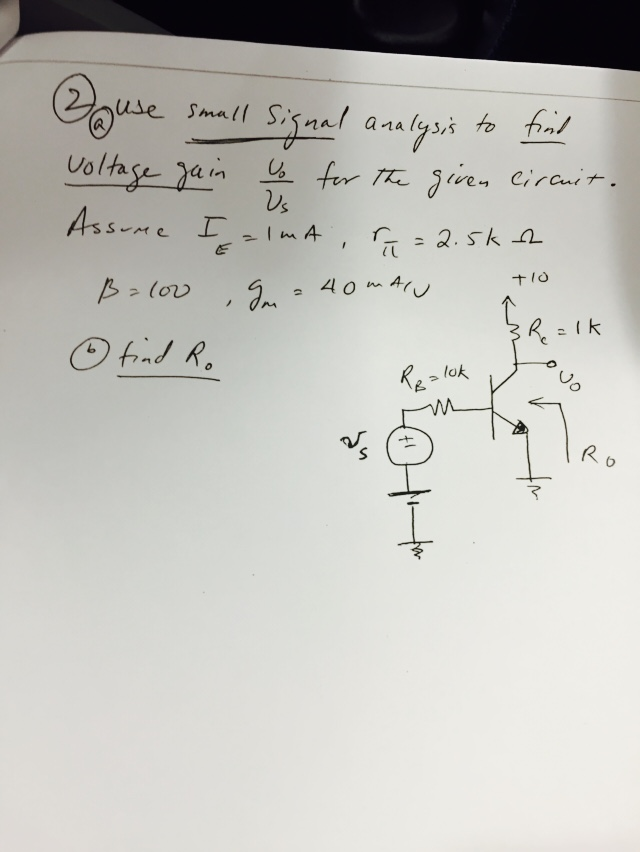 2 a use small signal analysis to find
voltage gain Vo/Vs for the given circuit.
Assume IE = 1mA, rπ = 2.5k Ω
β = 100, gm = 40 mA/V
b find Ro
+10
Rc = 1k
RB = 10k
vo
vs
+
Ro